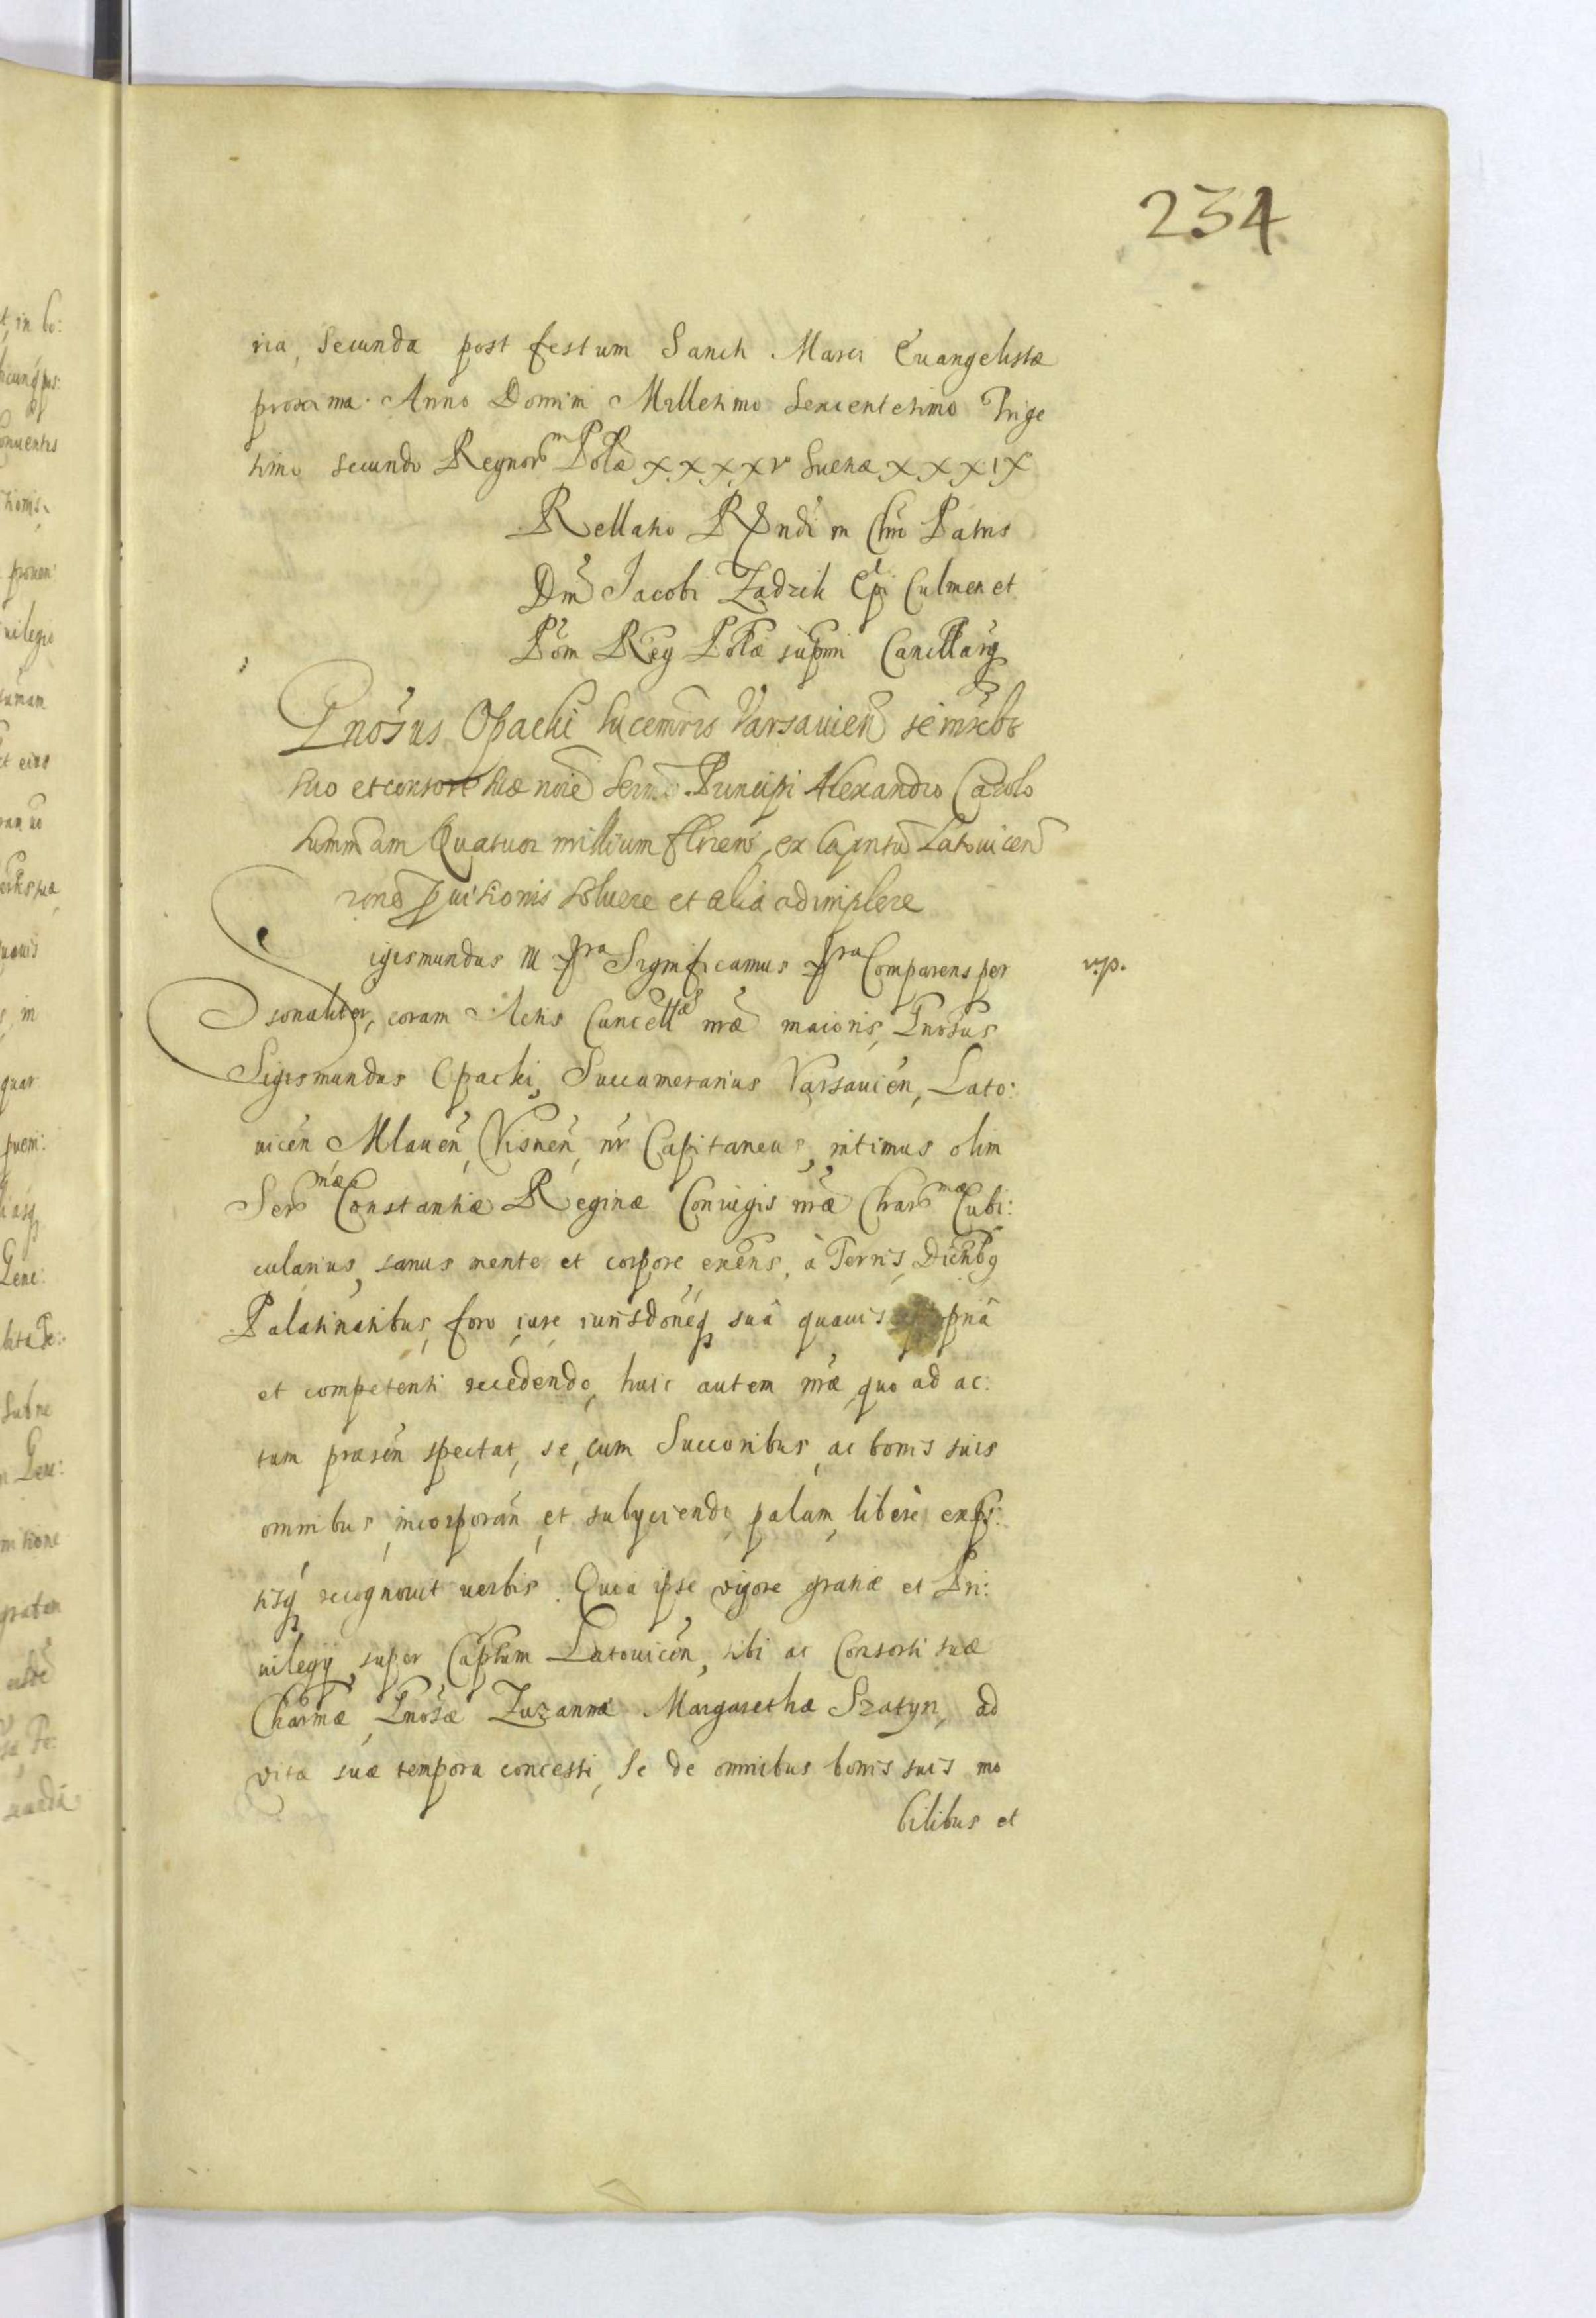 234
ria, Secunda post festum Sancti Marci Euangelistæ
proxima. Anno Domini Millesimo Sexcentesimo Trige
simo secundo Regnorm Polæ XXXXV Sueciæ XXXIX
Rellatio Rndi in Chro Patris
Dni Jacobi Zadzik Epi Culmen et
Pom Reg Polæ supmi Cancellarij
Gnosus Opacki Succemrius Varsauien se inscbt
suo et consortis suæ noie Sermo Principi Alexandro Carolo
summam Quatuor millium flrien, ex Capntu Latouicen
rone puisionis soluere et alia adimplere
Sigismundus III pra Significamus pra Comparens per
sonaliter, coram Actis Cancellæ nræ maioris, Gnosus
Sigismundus Opacki, Succamerarius Varsauien, Lato:
uicen, Mlauen, Visnen, nr Capitaneus, intimus olim
Sermæ Constantiæ Reginæ Coniugis nræ Charmæ Cubi:
cularius, sanus mente et corpore exens, à Terris, Dictibq
Palatinatibus, foro iure iurisdoneq suâ quauis pnâ
et competenti recedendo, huic autem nræ, quo ad ac:
tum præsen spectat, se, cum Succoribus, ac bonis suis
omnibus, incorporan et subijciendo, palam, liberè exps:
sisq recognouit uerbis. Quia ipse vigore gratiæ et Pri:
uilegij super Captum Latouicen, sibi ac Consorti suæ
Charmæ, Gnosæ Zuzannæ Margarethæ Szatyn, ad
vitæ suæ tempora concessi, Se de omnibus bonis suis mo
bilibus et